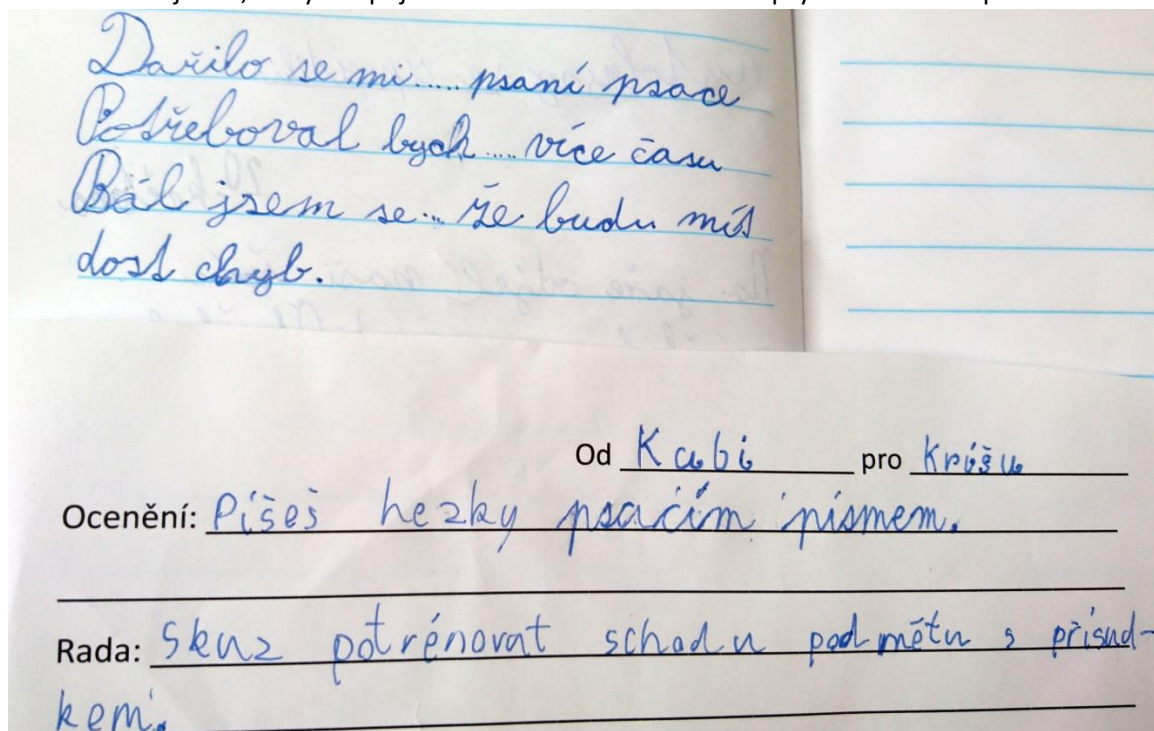 Dařilo se mi.... psaní psace
Potřeboval bych... více času
Bál jsem se... že budu mít
dost chyb.
Od Kubi pro Krišu
Ocenění: Píšeš hezky psacím písmem.
Rada: Skuz potrénovat schodu podmětu s přísud-
kem.